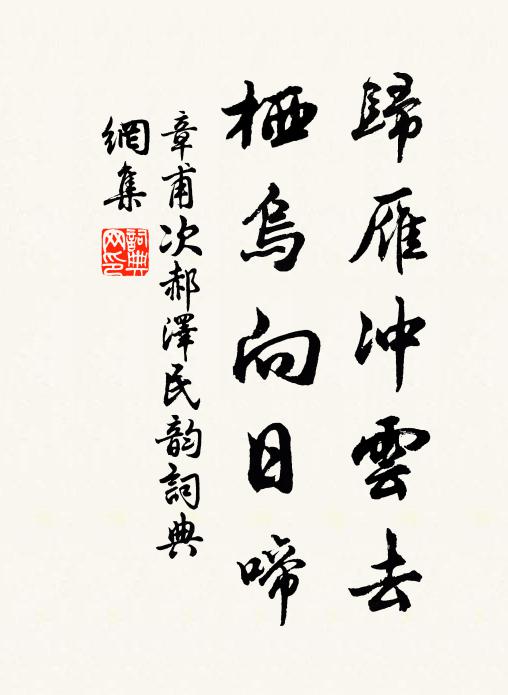 歸雁冲雲去
栖烏向日啼
章甫次郝澤民韵詞典
網集
詞典
网印